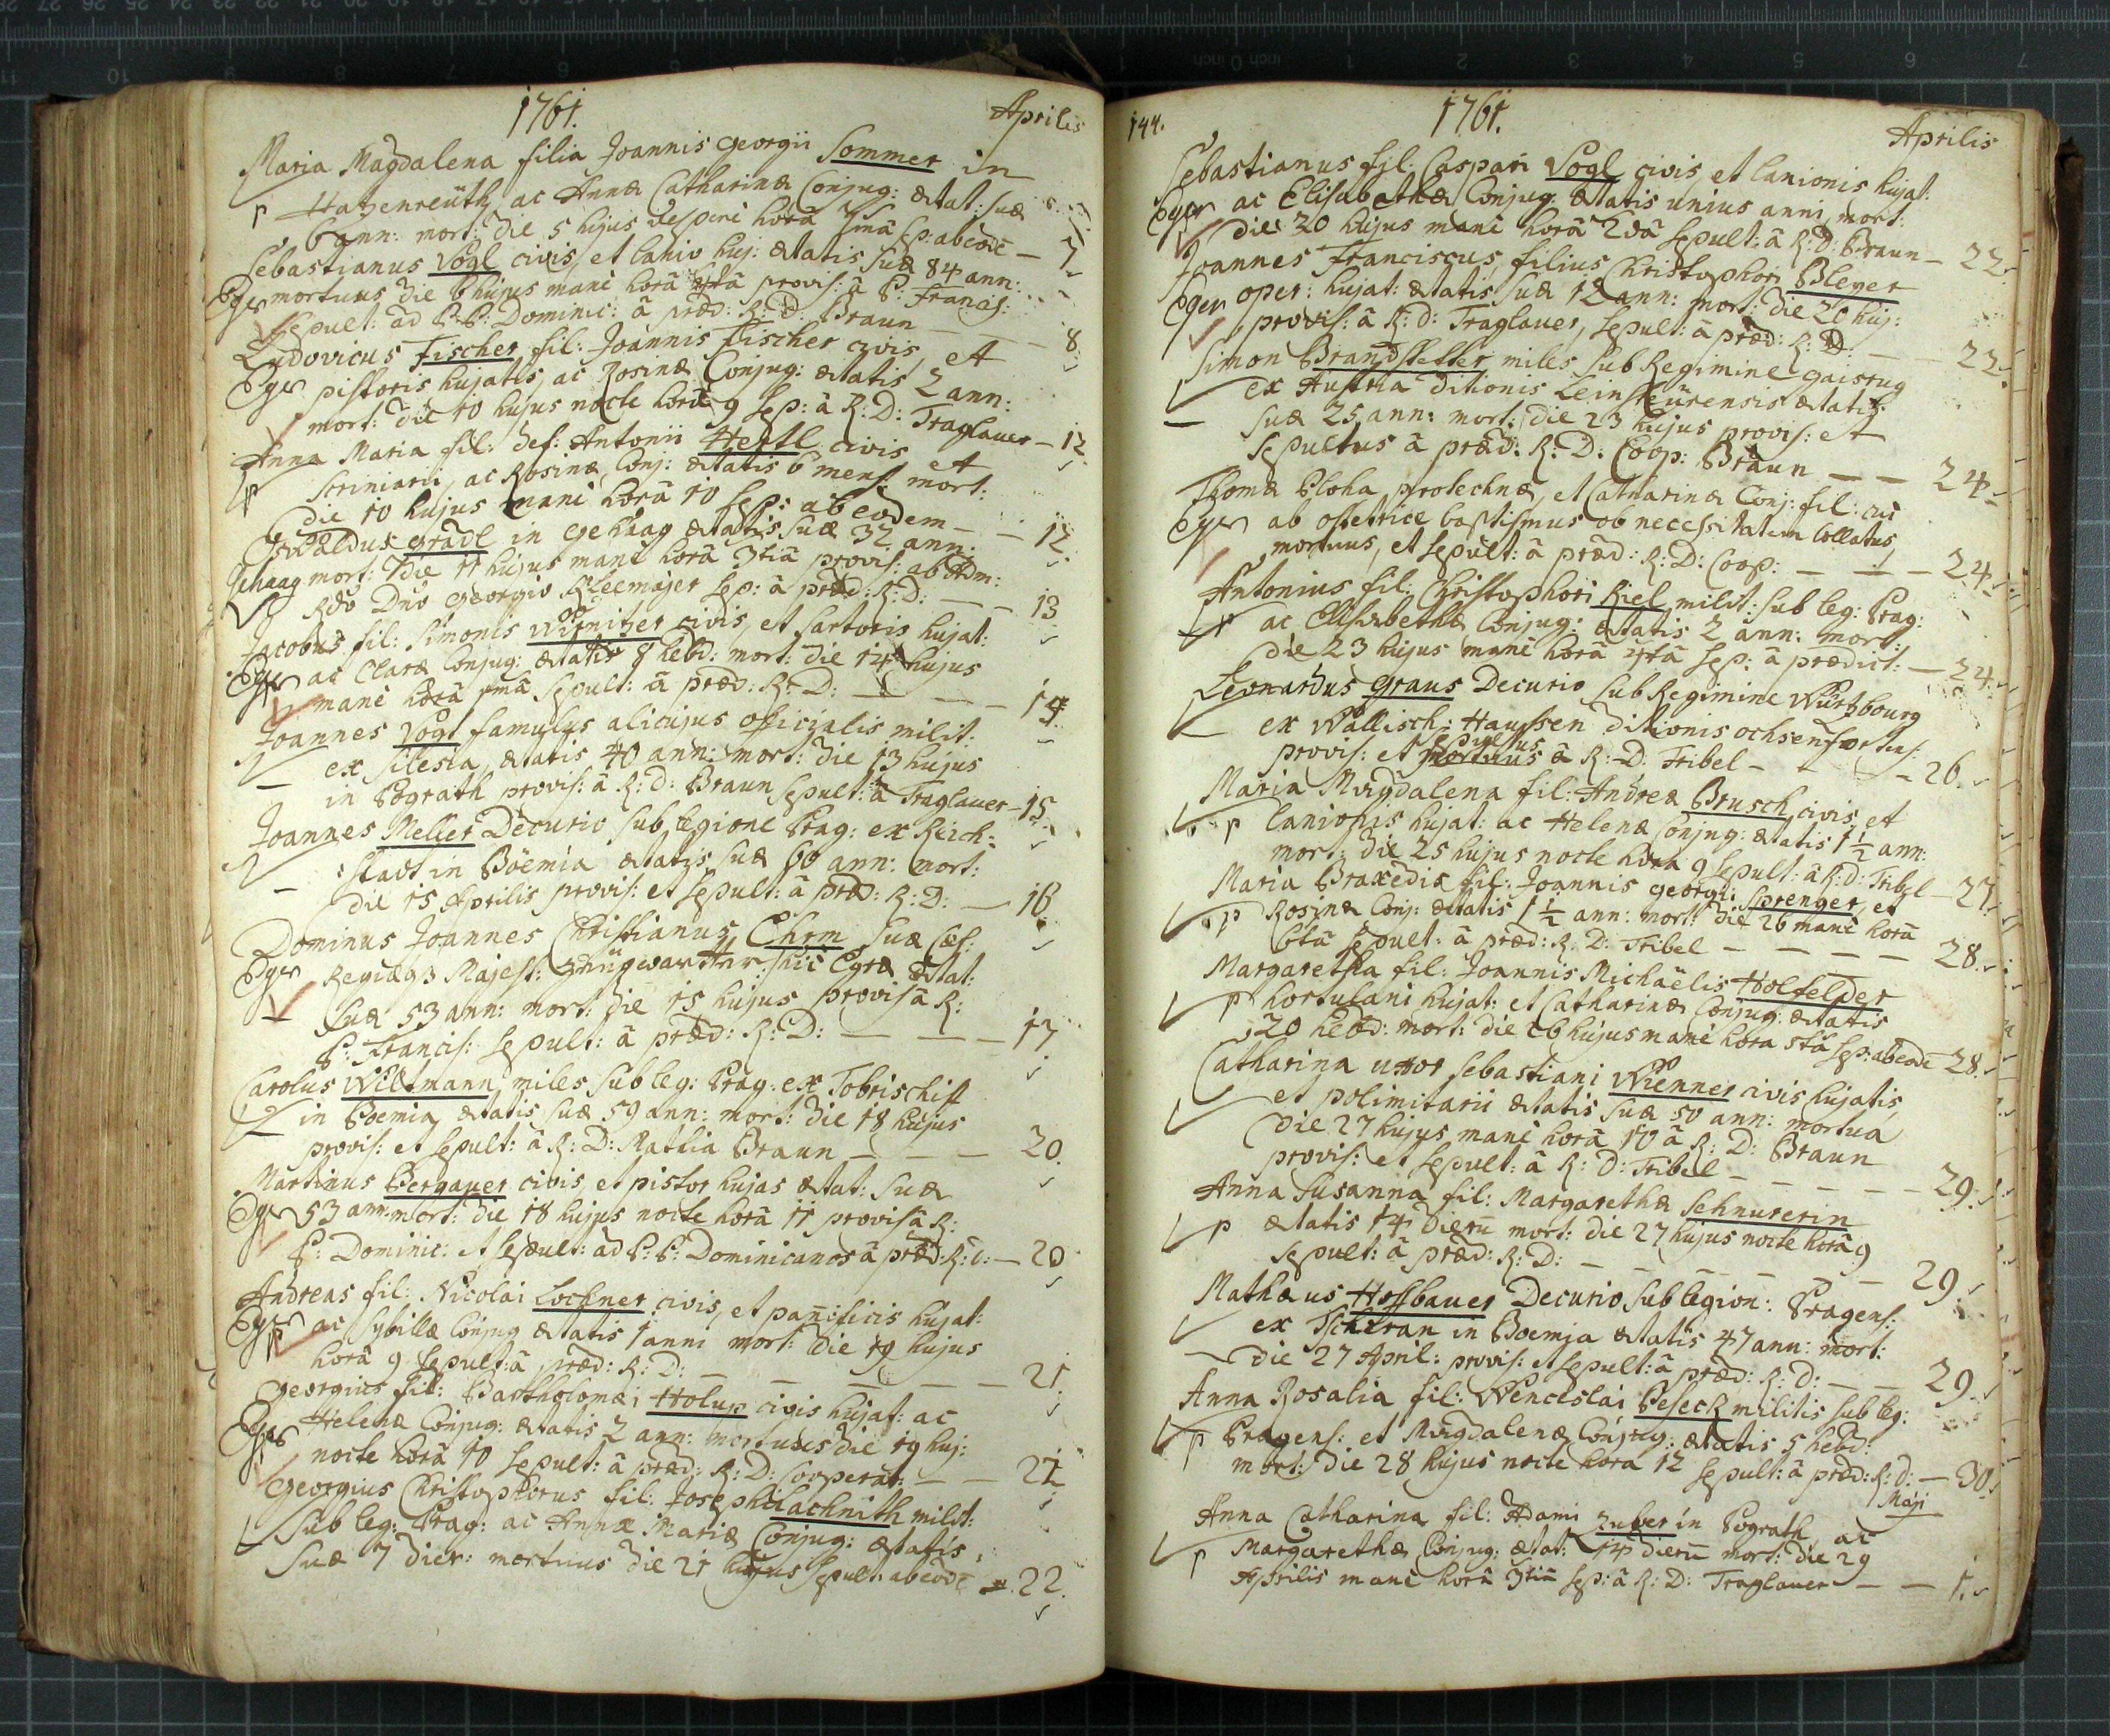 1761.
Aprilis
Maria Magdalena filia Joannis Georgii Sommer in
p Hatzenreüth, ac Annæ Catharinæ Conjug: ætat: suæ
6 ann: mort: die 5 hujus vesperi horâ 7mâ sep: ab eod: — 7
Sebastianus Vogl civis, et lanio huj: ætatis suæ 84 ann:
Eger mortuus die 6 hujus mane horâ provis: â P: Francis:
sepult: ad P:P: Dominic: â præd: R: D: Braun — — 8.
Ludovicus Fischer fil: Joannis Fischer civis, et
Eger pistoris hujatis, ac Rosinæ Conjug: ætatis 2 ann:
mort: die 10 hujus nocte horâ 9 sep: â R: D: Traglauer — 12.
Anna Maria fil: def: Antonii Hertl civis et
p scriniarii, ac Rosinæ Conj: ætatis 6 mens: mort:
die 10 hujus mane horâ 10 sep: ab eodem — — 12.
Oswaldus Gradl in Gehaag ætatis suæ 32 ann:
Gehaag mort: die 11 hujus mane horâ 3tiâ provis: ab Adm:
Rdo Dno Georgio Kleemajer sep: â præd: R: D: — — 13
Jacobus fil: Simonis Wirnitzer civis, et sartoris hujat:
Eger ac Claræ Conjug: ætatis 8 hebd: mort: die 14 hujus
mane horâ 1mâ sepult: â præd: R: D: — — — 14.
Joannes Vogl famulus alicujus officialis milit:
ex Silesia, ætatis 40 ann: mort: die 13 hujus
— in Pograth provis: â R: D: Braun sepult: â Traglauer — 15.
Joannes Meller Decurio sub legione Prag: ex Reich:
— :stadt in Böemia ætatis suæ 60 ann: mort:
die 15 Aprilis provis: et sepult: â præd: R: D: — 16.
Dominus Joannes Christianus Ehrm suæ Cæs:
Eger Regiæq3 Majest: Zeugwartter hic Egræ ætat:
— suæ 53 ann: mort: die 15 hujus provis: â R:
P: Francis: sepult: â præd: R: D: — — — 17.
Carolus Willmann miles sub leg: Prag: ex Tobrischist
— in Boemia, ætatis suæ 59 ann: mort: die 18 hujus
provis: et sepult: â R: D: Mathia Braun — — — 20.
Martinus Pergauer civis et pistor hujas ætat: suæ
Eger 53 ann: mort: die 18 hujus nocte horâ 11 provis: â R:
P: Dominic: et sepult: ad P: P: Dominicanos â præd: R: D: — 20
Andreas fil: Nicolai Lochner civis, et panificis hujat:
Eger ac Sybillæ Conjug ætatis 1 anni mort: die 19 hujus
p horâ 9 sepult: â præd: R: D: — — — — 21.
Georgius fil: Bartholomæi Holup civis hujat: ac
Eger Helenæ Conjug: ætatis 2 ann: mortuus die 19 huj:
nocte horâ 10 sepult: â præd: R: D: Cooperat: — — 21.
Georgius Christophorus fil: Josephi Lachnith milit:
Sub leg: Prag: ac Annæ Mariæ Conjug: ætatis
suæ 7 dier: mortuus die 21 hujus sepult: ab eode — 22.
144.
1761.
Aprilis
Sebastianus fil: Caspari Vogl civis, et lanionis hujat:
Eger ac Elisabethæ Conjug: ætatis unius anni, mort:
die 20 hujus mane horâ 2dâ sepult: â R: D: Braun — 22.
Joannes Franciscus, filius Christophori Bleyer
Eger oper: hujat: ætatis suæ 12 ann: mort: die 20 huj:
provis: â R: D: Traglauer, sepult: â præd: R: D: — — 22.
Simon Brandstetter miles sub Regimine Gaisrug
ex Austria Ditionis Leinsteürensis ætatis
— suæ 25 ann: mort: die 23 hujus provis: et
sepultus â præd: R: D: Coop: Braun — — 24.
Thomæ Ploha protechnæ, et Catharinæ Conj: fil: cui
Eger ab ostetrice baptismus ob necessitatem collatus,
mortuus, et sepult: â præd: R: D: Coop: — — — 24.
Antonius fil: Christophori Kiel milit: sub leg: Prag:
p ac Elisabethæ Conjug: ætatis 2 ann: mort:
die 23 hujus mane horâ 4tâ sep: â prædict: — 24.
Leonardus Graus Decurio sub Regimine Würtzbourg
— ex Wällisch: Haussen Ditionis ochsenfortens:
sepultus
provis: et mortuus â R: D: Tribel — — — 26.
Maria Magdalena fil: Andreæ Brusch civis, et
p lanionis hujat: ac Helenæ Conjug: ætatis 1 1/2 ann:
mort: die 25 hujus nocte hora 9 sepult: â R: D: Tribel — 27.
Maria Braxedis fil: Joannis Georgii Sprenger, et
p Rosinæ Conj: ætatis 1 1/2 ann: mort: die 26 mane horâ
6tâ sepult: â præd: R: D: Tribel — — — — 28.
Margaretha fil: Joannis Michaëlis Holfelder
p hortulani hujat: et Catharinæ Conjug: ætatis
20 hebd: mort: die 26 hujus mane hora 5tâ sep: ab eode — 28.
Catharina uxor Sebastiani Wienner civis hujatis,
et polimitarii ætatis suæ 50 ann: mortua
die 27 hujus mane horâ 10 â R: D: Braun
provis: et sepult: â R: D: Tribel — — — — — 29.
Anna Susanna fil: Margarethæ Schnurerin
p ætatis 14 dieru mort: die 27 hujus nocte horâ 9
sepult: â præd: R: D: — — — — — — 29.
Mathæus Hoffbauer Decurio sub legion: Pragens:
ex Tscheran in Boemia ætatis 47 ann: mort:
— die 27 April: provis: et sepult: â præd: R: D: — — 29.
Anna Rosalia fil: Wenceslai Peseck militis sub leg:
p Pragens: et Magdalenæ Conjug: ætatis 5 hebd:
mort: die 28 hujus nocte hora 12 sepult: â præd: R: D: — 30.
Maji
Anna Catharina fil: Adami Zuber in Pograth, ac
p Margarethæ Conjug: ætat: 14 dieru mort: die 29
Aprilis mane horâ 3tiâ sep: â R: D: Traglauer — — 1.